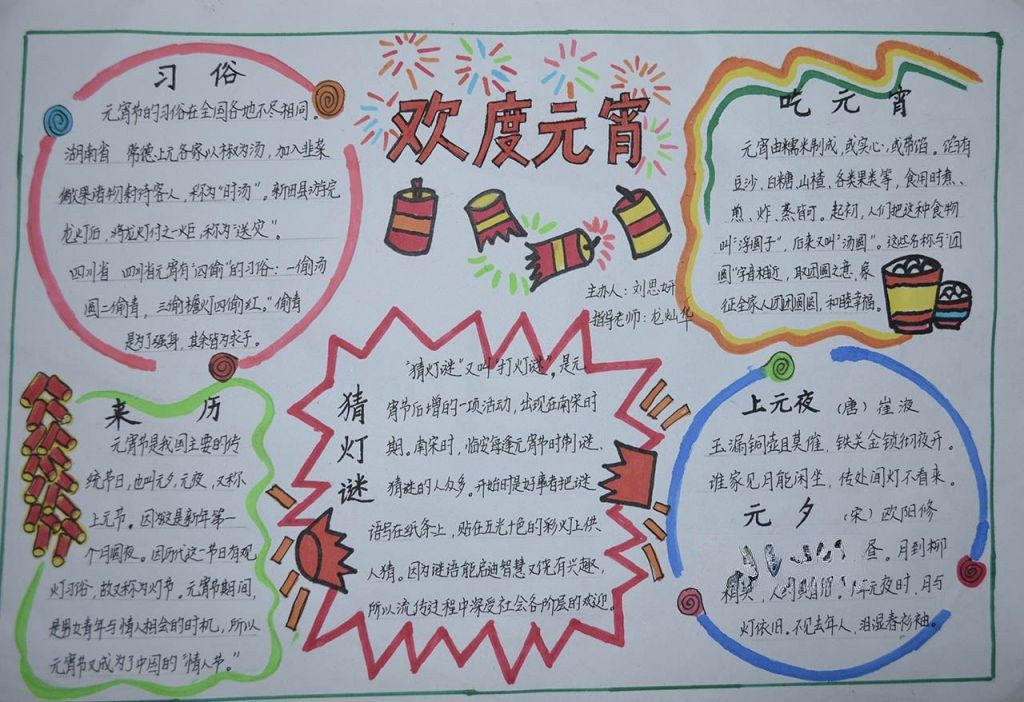 欢度元宵
主办人：刘思妍
指导老师：龙灿华
习 俗
元宵节的习俗在全国各地不尽相同。
湖南省 常德上元各家以椒为汤，加入韭菜
微果诸物款待客人，称为“时汤”。新田县游完
龙灯后，将龙灯付之一炬，称为“送灾”。
四川省 四川省元宵有“四偷”的习俗：一偷汤
圆二偷青，三偷檐火四偷红。“偷青
是为了强身，其余皆为求子。
来 历
元宵节是我国主要的传
统节日，也叫元夕，元夜，又称
上元节。因为这是新年第一
个月圆夜。因历代这一节日有观
灯习俗，故又称为灯节。元宵节期间，
是男女青年与情人相会的时机，所以
元宵节又成为了中国的“情人节。”
猜灯谜
“猜灯谜”又叫“打灯谜”。是元
宵节后增的一项活动，出现在南宋时
期。南宋时，临安每逢元宵节时制谜，
猜谜的人众多。开始时是好事者把谜
语写在纸条上，贴在五光十色的彩灯上供
人猜。因为谜语能启迪智慧又饶有兴趣，
所以流传过程中深受社会各阶层的欢迎。
吃 元 宵
元宵由糯米制成，或实心，或带馅。馅有
豆沙，白糖，山楂，各类果类等，食用时煮、
煎、炸、蒸皆可。起初，人们把这种食物
叫“浮圆子”，后来又叫“汤圆”。这些名称与“团
圆”字音相近，取团圆之意，象
征全家人团团圆圆，和睦幸福。
上元夜（唐）崔液
玉漏铜壶且莫催，铁关金锁彻夜开。
谁家见月能闲坐，传处闻灯不看来。
元 夕（宋）欧阳修
昼。月到柳
梢头，人约
元夜时，月与
灯依旧。不见去年人，泪湿春衫袖。